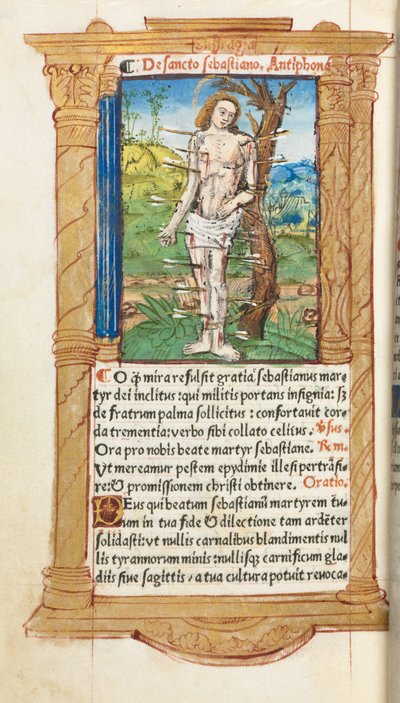 De sancto sebastiano. Antiphona
O q̃ mira refulsit gratia. Sebastianus mar-
tyr dei inclitus: qui militis portans insignia: sꝫ
de fratrum palma sollicitus: confortauit cor-
da trementia: verbo sibi collato celitus. ℣sus.
Ora pro nobis beate martyr sebastiane. Rem.
Ut mereamur pestem epydimie illesi pertrãsi-
re: & promissionem christi obtinere. Oratio.
Deus qui beatum sebastianũ martyrem tu-
um in tua fide & dilectione tam ardẽter
solidasti: vt nullis carnalibus blandimentis nul
lis tyrannorum minis: nullisqꝫ carnificum gla-
diis siue sagittis, a tua cultura potuit reuoca-